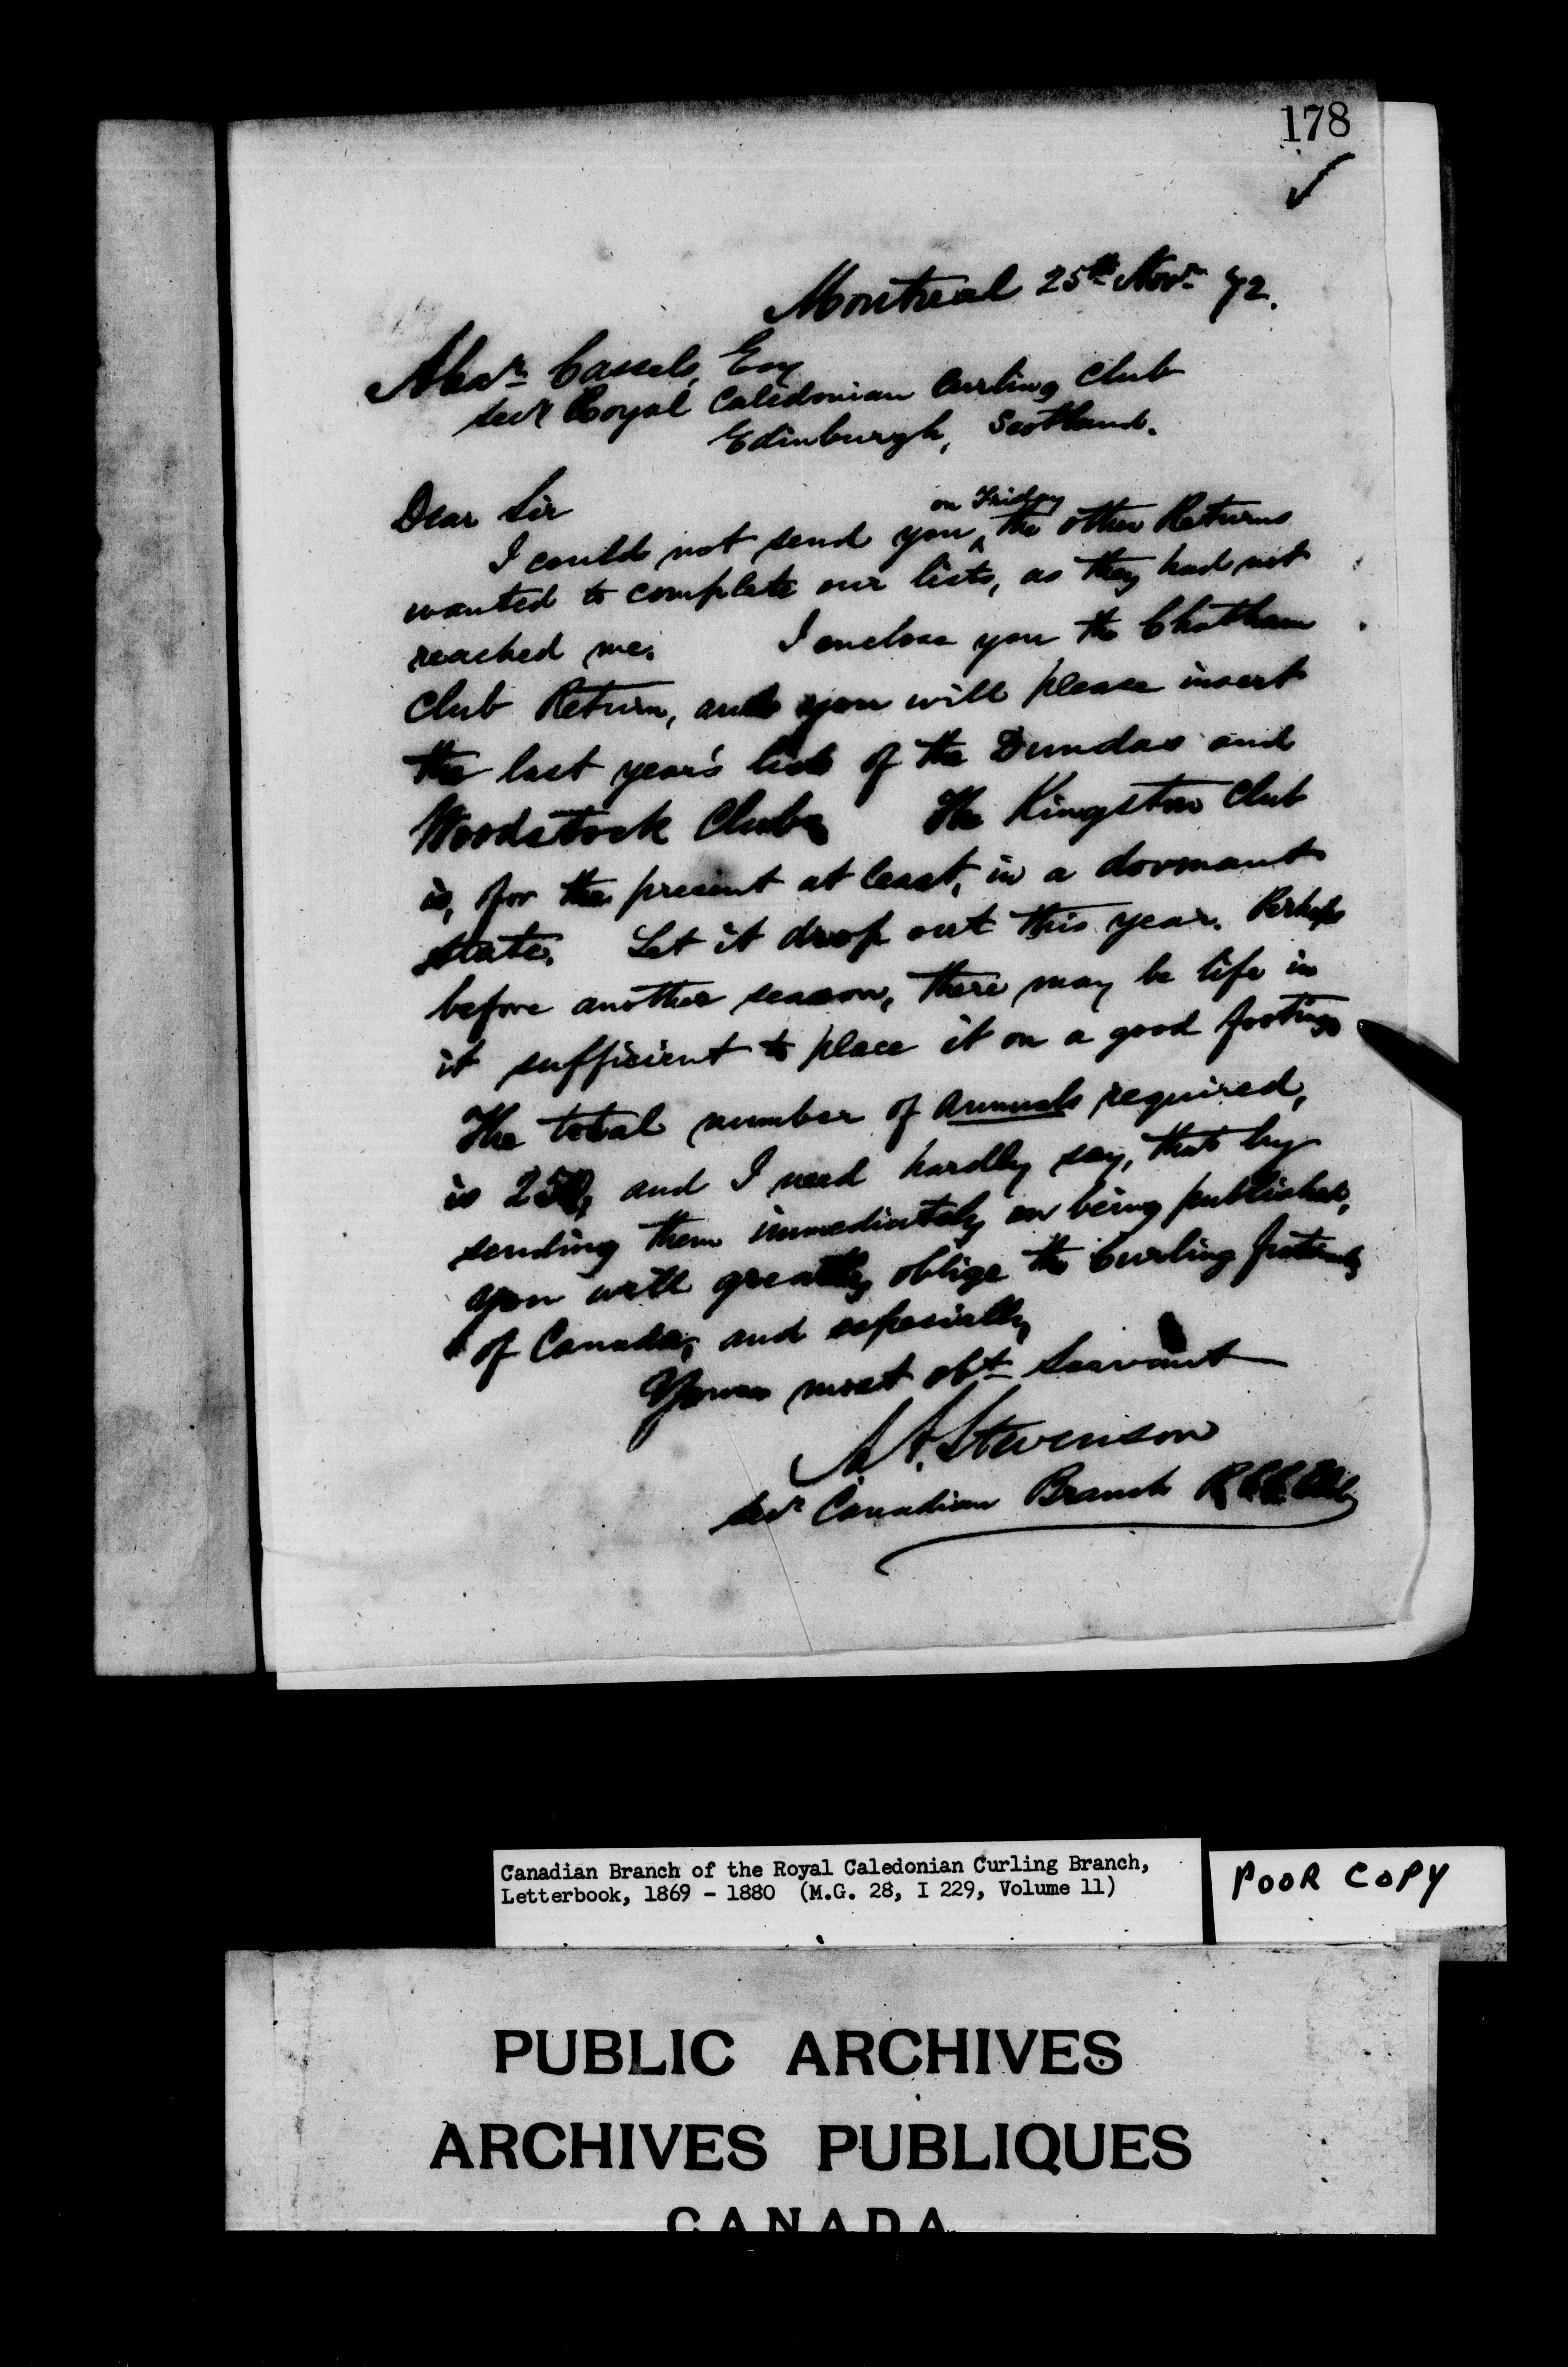 178
Montreal 25th Novr 72.
Alexr Cassels, Esq
Secy Royal Caledonian Curling Club
Edinburgh, Scotland.
Dear Sir
on Friday
I could not send you ^ the other Returns
wanted to complete our lists, as they had not
reached me. I enclose you the Chatham
Club Return, and you will please insert
the last year's lists of the Dundas and
Woodstock Clubs The Kingston Club
is, for the present at least, in a dormant
state. Let it drop out this year. Perhaps
before another season, there may be life in
it sufficient to place it on a good footing
The total number of Annuals required,
is and I need hardly say, that by
sending them immediately on being published,
you will greatly oblige the Curling fraternity
of Canada, and especially
Yours most obt Servant
A. A. Stevenson
Secy Canadian Branch
Canadian Branch of the Royal Caledonian Curling Branch,
Letterbook, 1869 - 1880 (M.G. 28, I 229, Volume 11)
POOR COPY
PUBLIC ARCHIVES
ARCHIVES PUBLIQUES
CANADA